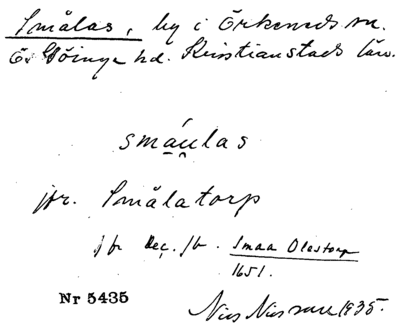 Smålas, by i Örkeneds sn.
Ö. Göinge hd. Kristianstads län.
smáu̯las
jfr. Smålatorp
jfr Dec. fb. Smaa Olastorp
1651.
Nr 5435
Nils Nilsson 1935.